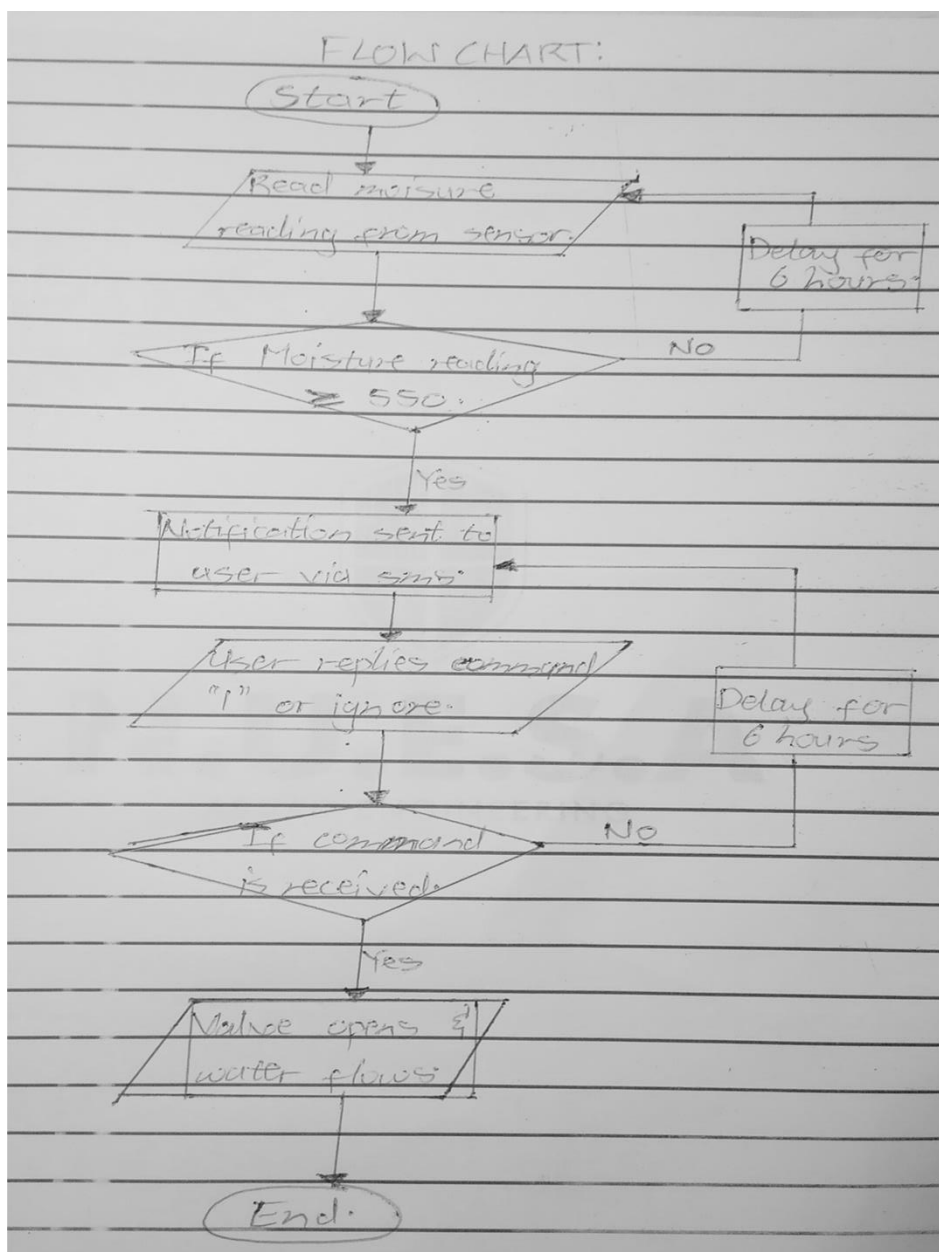 FLOW CHART:
Start
Read moisure
reading from sensor.
Delay for
6 hours.
If Moisture reading
≥ 550.
No
Yes
Notification sent to
user via sms.
User replies command
"1" or ignore.
Delay for
6 hours
If command
is received.
No
Yes
Valve opens &
water flows.
End.